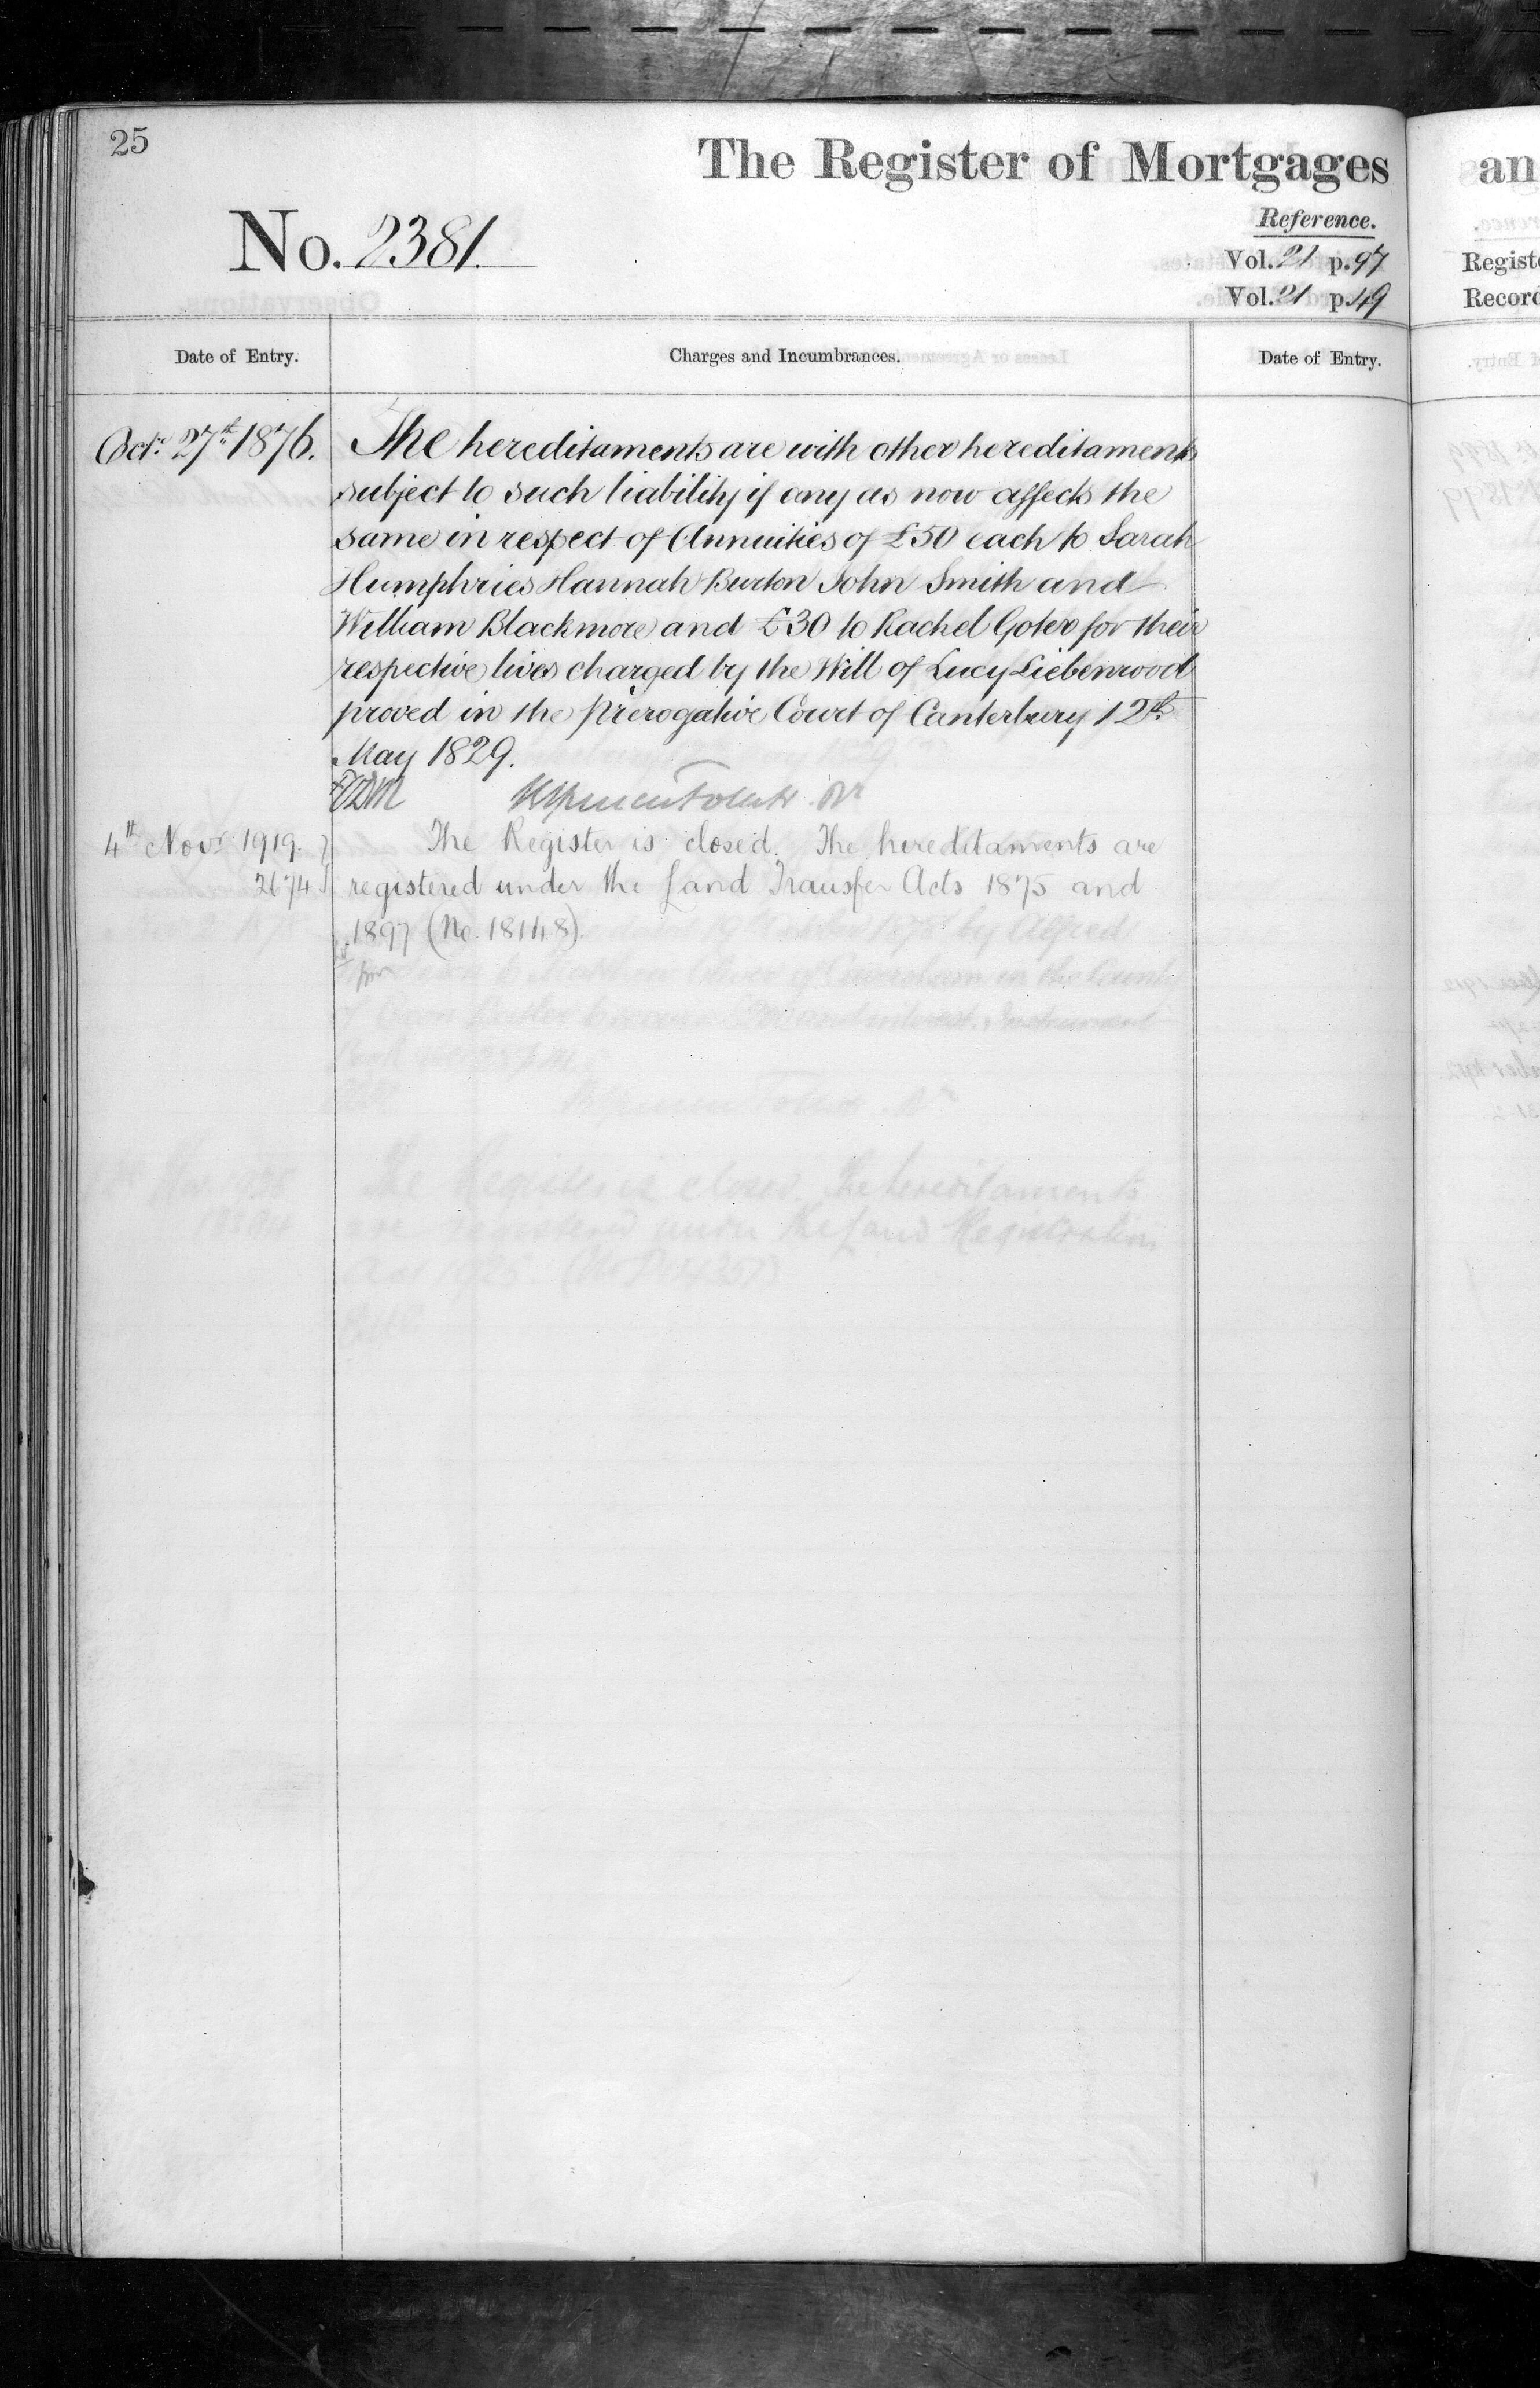 25
The Register of Mortgages
No. 2381.
Reference.
Vol. 21 p. 97
Vol. 21 p. 49
Date of Entry.
Charges and Incumbrances.
Date of Entry.
Oct.r 27th 1876.
The hereditaments are with other hereditaments
subject to such liability if any as now affects the
same in respect of Annuities of £50 each to Sarah
Humphries Hannah Burton John Smith and
William Blackmore and £30 to Rachel Goter for their
respective lives charged by the Will of Lucy Liebenrood
proved in the Prerogative Court of Canterbury 12th
May 1829.
4th Novr 1919.
2674
The Register is closed. The hereditaments are
registered under the Land Transfer Acts 1875 and
1897 (No. 18148).
an
Regist
Record